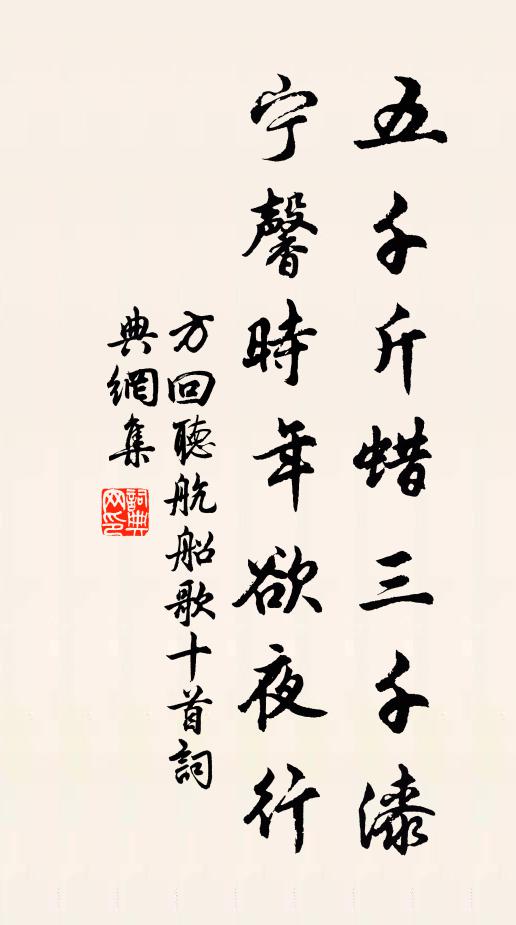 五千斤蜡三千漆
宁馨時年欲夜行
方回聽航船歌十首詞
典網集
詞典网印